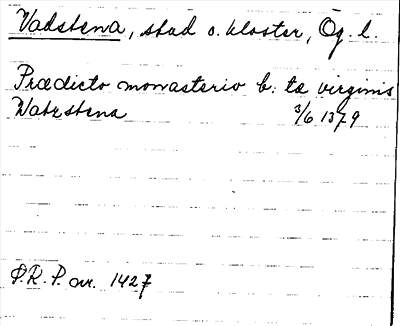 Vadstena, stad o. kloster, Ög. l.
Prædicto monasterio b. tæ virginis
Watzstena 3/6 1379
S.R.P. nr. 1427